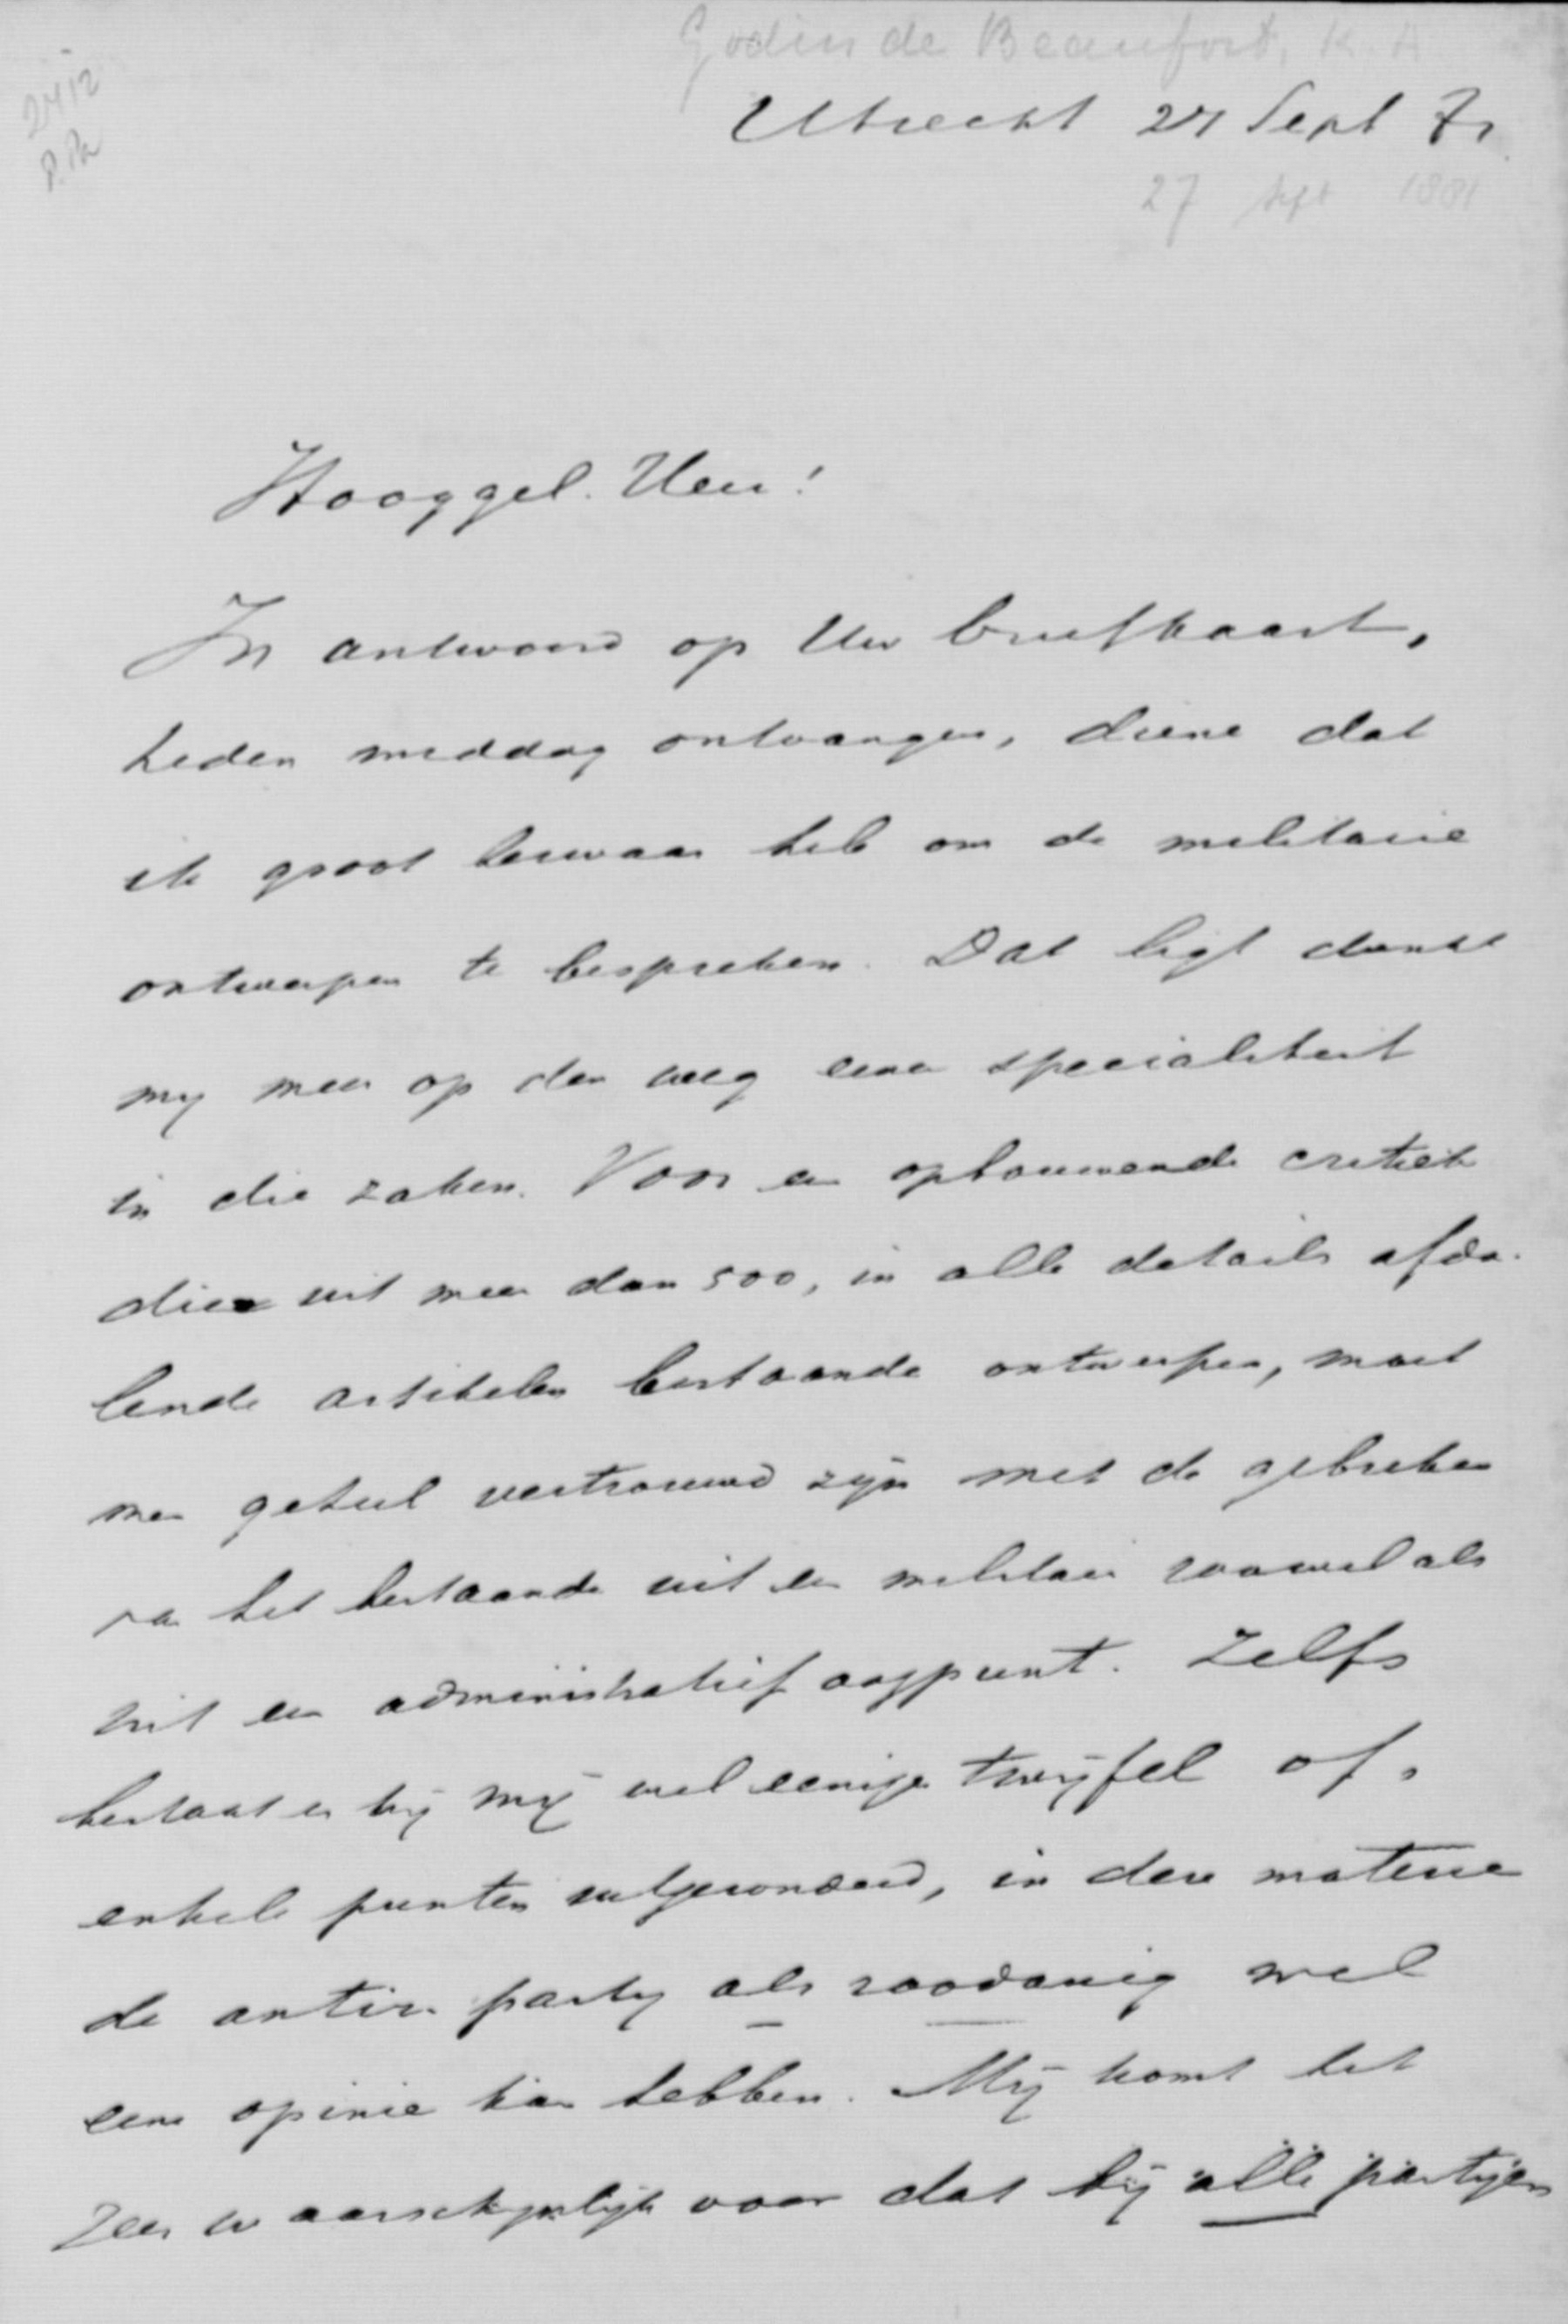 Godin de Beaufort, K. A
2412
P. Pa
Utrecht 27 Sept 81
27 sept 1881
Hooggel. Heer!
In antwoord op Uw briefkaart,
heden middag ontvangen, diene dat
ik groot bezwaar heb om de militaire
ontwerpen te bespreken. Dat ligt dunkt
my meer op den weg eener specialiteit
in die zaken. Voor een opbouwende critiek
dier uit meer dan 500, in alle details afda-
lende artikelen bestaande ontwerpen, moet
men geheel vertrouwd zijn met de gebreken
van het bestaande uit een militair zoowel als
uit een administratief oogpunt. Zelfs
bestaat er bij mij wel eenige twijfel of,
enkele punten uitgezonderd, in deze materie
de antir. party als zoodanig wel
eene opinie kan hebben. Mij komt het
zeer waarschijnlijk voor dat bij alle partijen